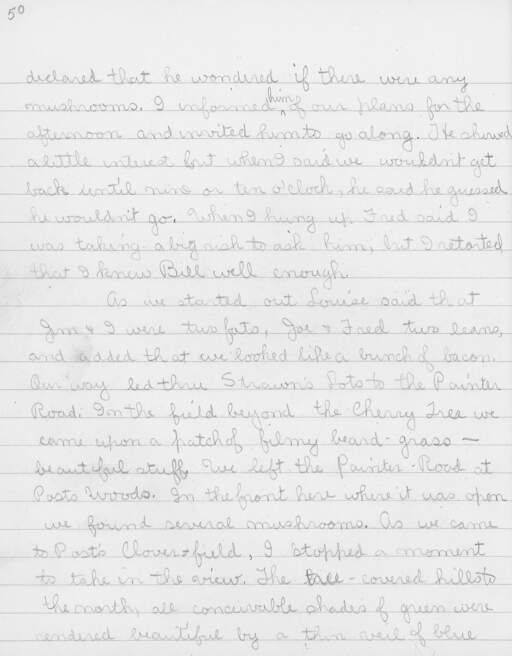 50
declared that he wondered if there were any
mushrooms. I informed him of our plans for the
afternoon and invited him to go along. He showed
a little interest but when I said we wouldn't get
back until nine or ten o'clock, he said he guessed
he wouldn't go. When I hung up Fred said I
was taking a big risk to ask him, but I retorted
that I knew Bill well enough.
As we started out Louise said that
Jim & I were two fats, Joe & Fred two leans,
and added that we looked like a bunch of bacon.
Our way led thru Strawn's Lots to the Painter
Road. In the field beyond the Cherry Tree we
came upon a patch of filmy beard-grass —
beautiful stuff. We left the Painter Road at
Posts Woods. In the front here where it was open
we found several mushrooms. As we came
to Post's Clover-field, I stopped a moment
to take in the view. The tree-covered hills to
the north, all conceivable shades of green were
rendered beautiful by a thin veil of blue